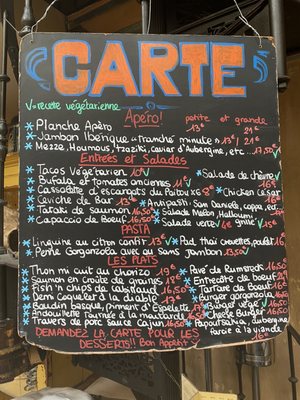 CARTE
V= recette végétarienne
Apéro! petite et grande
* Planche Apéro 13€ 21€
* Jambon Ibérique "tranché minute" 13€/ 21€
* Mezze, Houmous, Tzaziki, caviar d'Aubergine, etc... 17,50 √
Entrées et Salades
* Tacos Végétarien 10€ √
* Salade de chèvre
* Bufala et Tomates anciennes 11€
16€
* Cassolette d'escargots du Poitou x6 8€
* Chicken César
* Ceviche de Bar 13€
16,50
* Antipasti: San Daniels, coppa, etc
* Tartare de Saumon 16,50
* Salade Melon, Halloumi
* Capaccio de Boeuf 16,50
* Salade verte √ 4€ Grillé √ 15€
PASTA
* Linguine au citron confit 13€ √
* Pad thaï crevettes, poulet 16€
* Penne Gorgonzola avec ou sans jambon 13,50
LES PLATS
* Thon mi cuit au chorizo 19€
* Pavé de Rumsteck 16,50
* Saumon en croûte de graines 18€
* Entrecôte de boeuf
* Fish'n chips de cabillaud 16,50
* Tartare de Boeuf 16€
* Demi Coquelet à la diablo 17€
* Burger gorgonzola 16,50
* Boudin basque, piment d'Espelette
* Burger Végé √
* Andouillette Tournée à la moutarde
* Cheese Burger 16,50
* Travers de porc sauce Cajun 16,50
* Papoutsakia, aubergine
farcie à la viande
DEMANDEZ LA CARTE POUR LES
16€
DESSERTS!! Bon Appétit